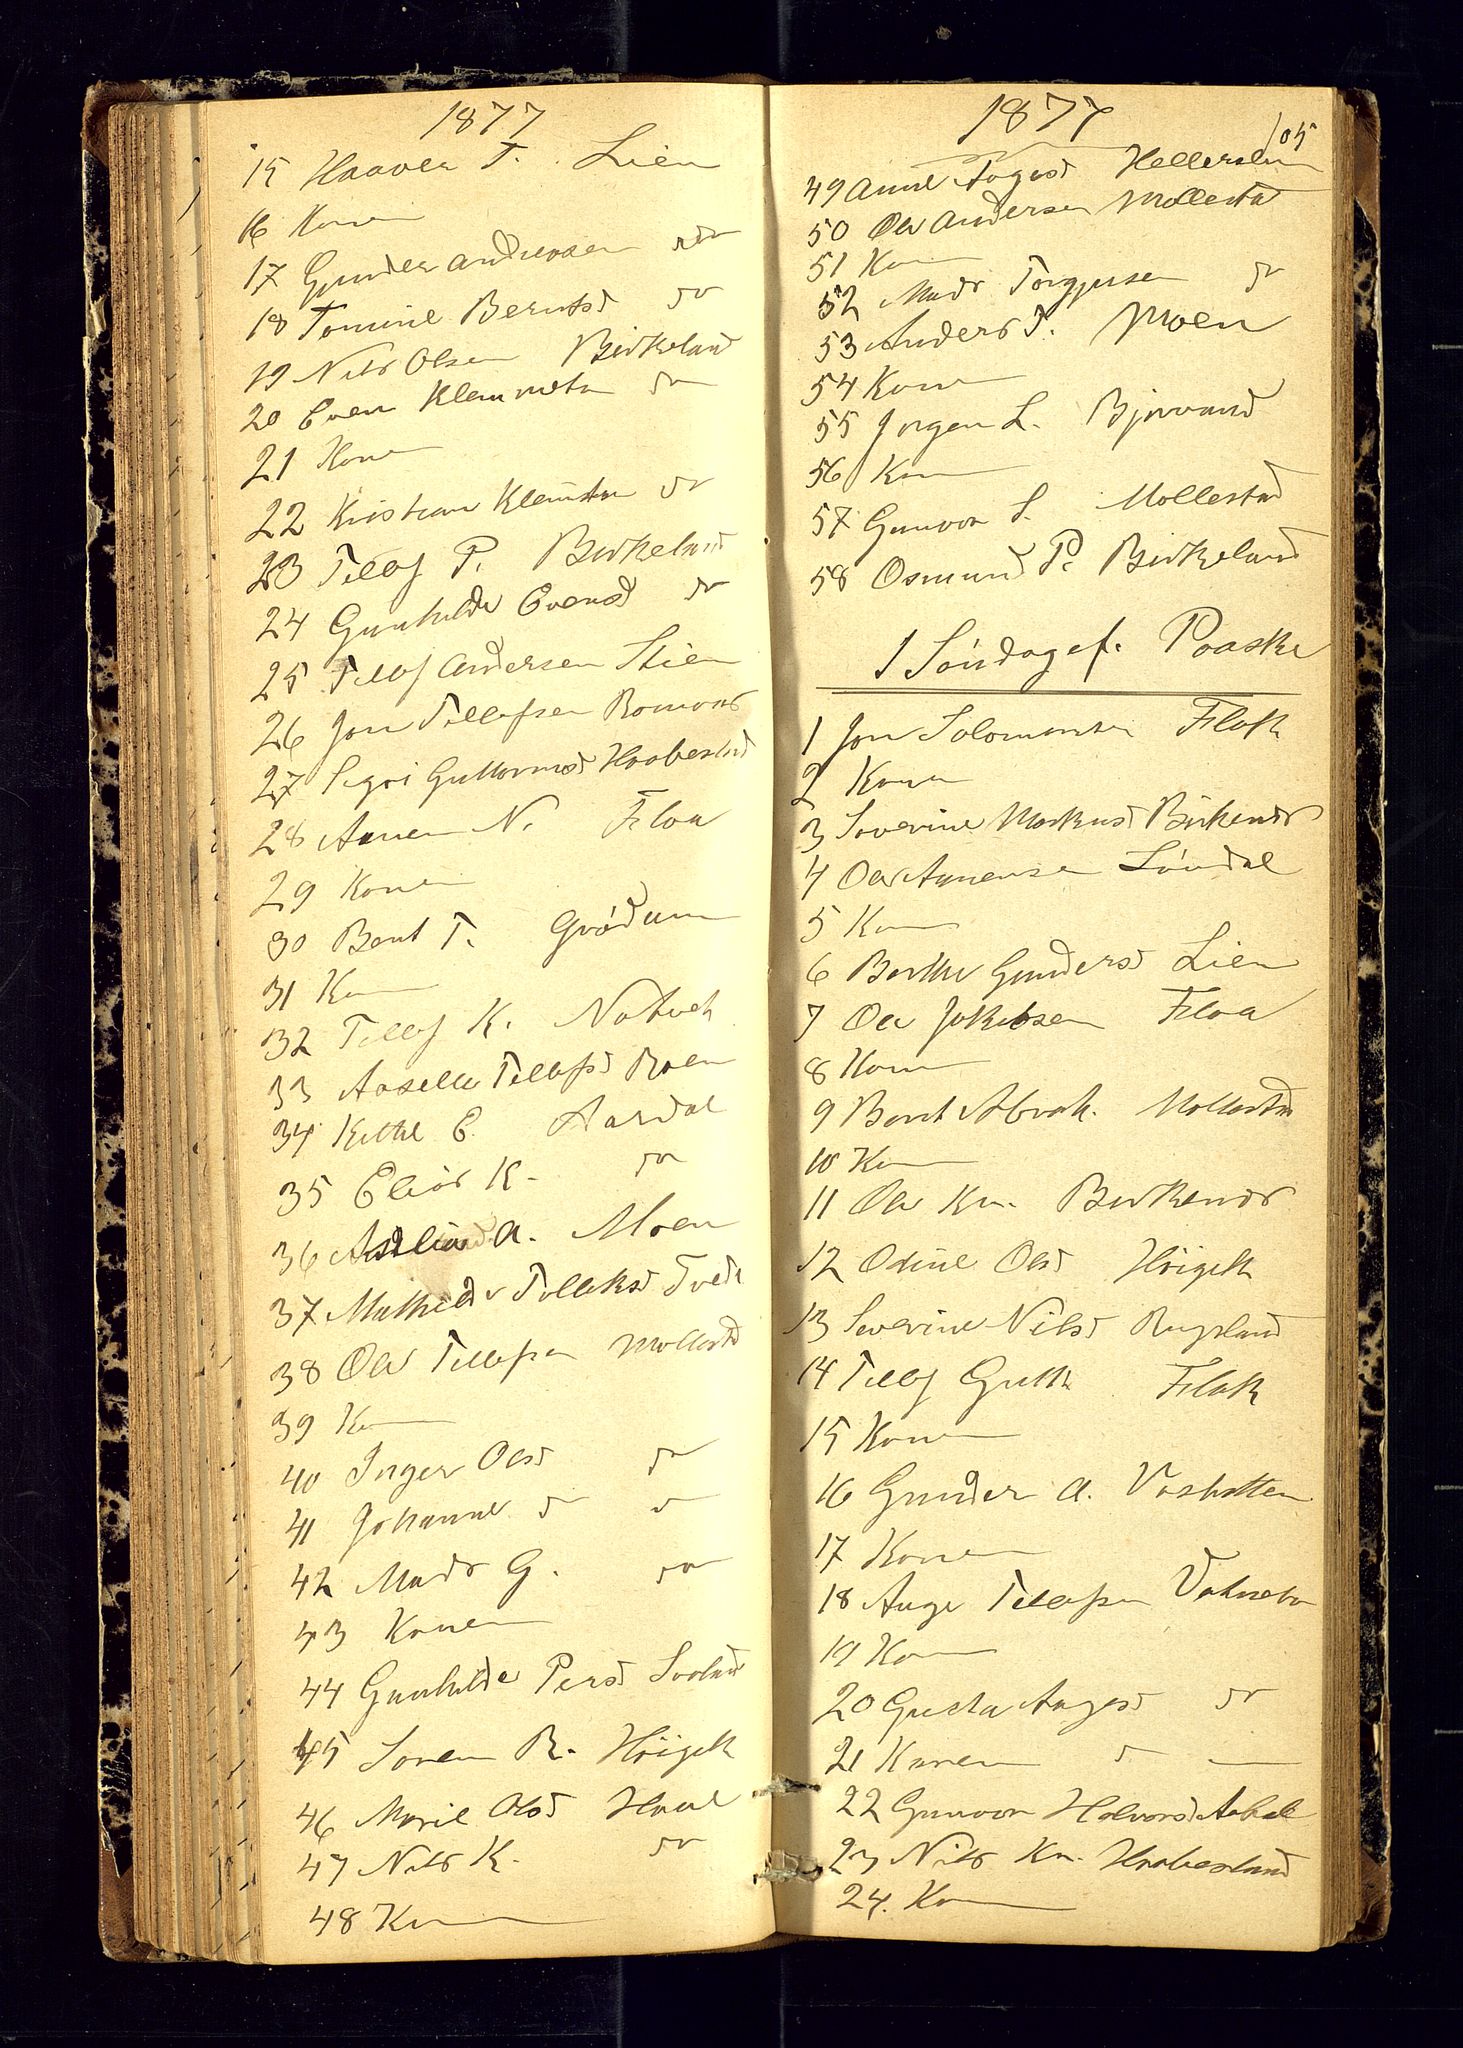 1877
15 Haaver T. Lien
16 Konen
17 Gunder Andersen do
18 Tomine Berntsd do
19 Nils Olsen Birkeland
20 Even Klemmets do
21 Konen
22 Kristian Klemets do
23 Tellef P. Birkeland
24 Gunhilde Evensd do
25 Tellef Andersen Stien
26 Jon Tellefsen
27 Sigri Guttormsd Haabesland
28 Aanen N. Floa
29 Konen
30 Bent T. Grødum
31 Konen
32 Tellef K.
33 Aaselle Tellefsd Roen
34 Kittel E. Aardal
35 Elias K. do
36 A. Moen
37 Mathilde Tellefsd Tvede
38 Ole Tellefsen Mollestad
39 Konen
40 Inger Olsd do
41 Johanne do do
42 Mads G. do
43 Konen
44 Gunhilde Persd
45 Soren R. Høigelt
46 Marie Olsd
47 Nils K. do
48 Konen
1877
105
49 Anne Aagesd
50 Ole Andersen Mollestad
51 Konen
52 Mads Torgjusen do
53 Anders T. Moen
54 Konen
55 Jorgen L. Bjorvand
56 Konen
57 Gunvor S. Mollestad
58 Osmund P. Birkeland
1 Søndag ef. Paaske
1 Jon Salomonsen Flak
2 Konen
3 Severine Markusd Birkenes
4 Ole Aanensen Søndal
5 Konen
6 Berthe Gundersd Lien
7 Ole Jakobsen Floa
8 Konen
9 Bent Abrah. Mollestad
10 Konen
11 Ole Kn. Birkenes
12 Odine Olsd Høigelt
13 Severine Nilsd Rugsland
14 Tellef Gutt. Flak
15 Konen
16 Gunder A.
17 Konen
18 Aage Tellefsen
19 Konen
20 Gusta Aagesd do
21 Karen do —
22 Gunvor Halvorsd
23 Nils Kn. Haabesland
24. Konen